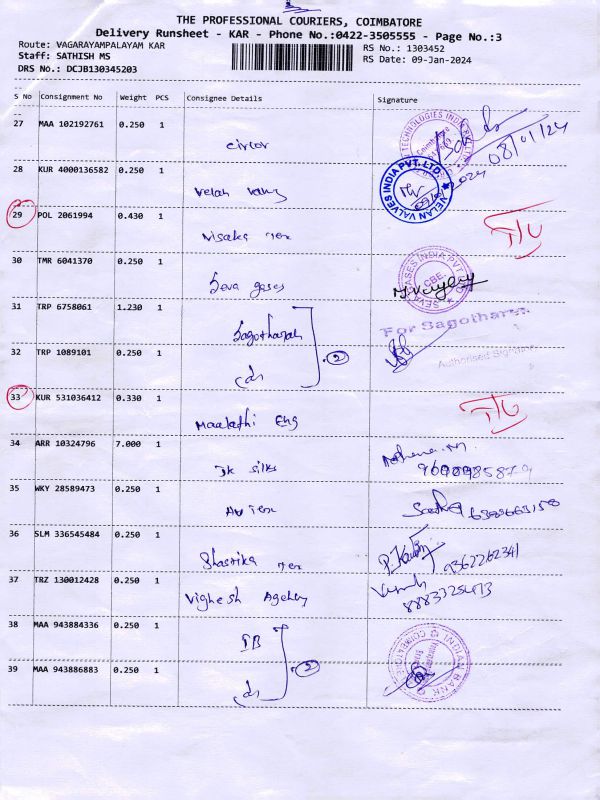 THE PROFESSIONAL COURIERS, COIMBATORE
Delivery Runsheet - KAR - Phone No.:0422-3505555 - Page No.:3
Route: VAGARAYAMPALAYAM KAR
RS No.: 1303452
Staff: SATHISH MS
RS Date: 09-Jan-2024
DRS No.: DCJB130345203
S No Consignment No Weight PCS Consignee Details Signature
27 MAA 102192761 0.250 1
Circor
08/01/24
28 KUR 4000136582 0.250 1
Velan Valves
VELAN VALVES INDIA PVT. LTD.
29 POL 2061994 0.430 1
Visaka Tex
30 TMR 6041370 0.250 1
Seva gases
SEVA GASES INDIA PVT LTD
CBE.
31 TRP 6758061 1.230 1
Sagotharan
For Sagotharan
32 TRP 1089101 0.250 1
do
2
Authorised Signature
33 KUR 531036412 0.330 1
Maalathi Eng
34 ARR 10324796 7.000 1
JK silks
35 WKY 28589473 0.250 1
AV Tex
36 SLM 336545484 0.250 1
Shastika Tex
9362262341
37 TRZ 130012428 0.250 1
Vighesh Agency
38 MAA 943884336 0.250 1
IB
39 MAA 943886883 0.250 1
do
2
INDIAN BANK